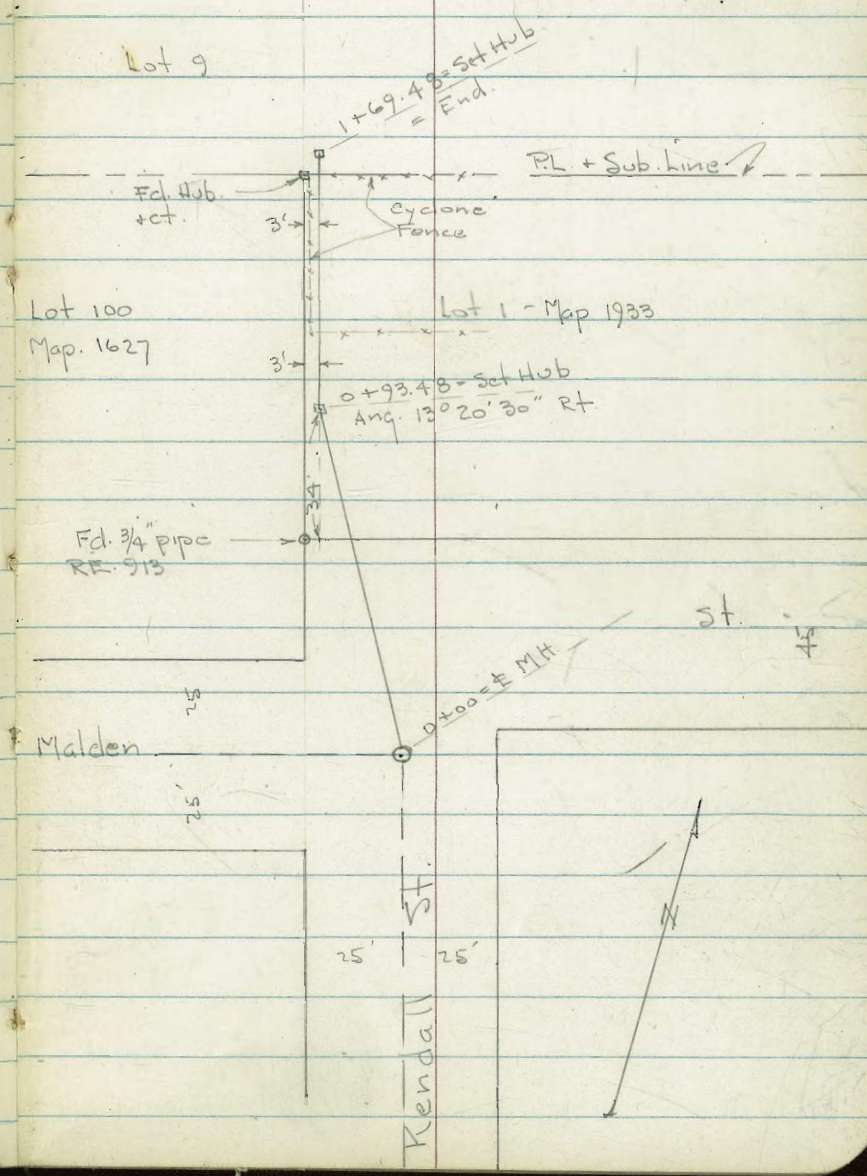 Lot 9
1+69.48 = Set Hub
= End.
P.L. + Sub. Line
Fd. Hub.
+ct.
3'
Cyclone
Fence
Lot 100
Map. 1627
Lot 1 - Map 1933
3'
0+93.48 = Set Hub
Ang. 13° 20' 30" Rt
34'
Fd. 3/4" pipe
R.E. 913
St.
0+00 = ℄ MH
25
Malden
25'
St.
N
25'
25'
Kendall